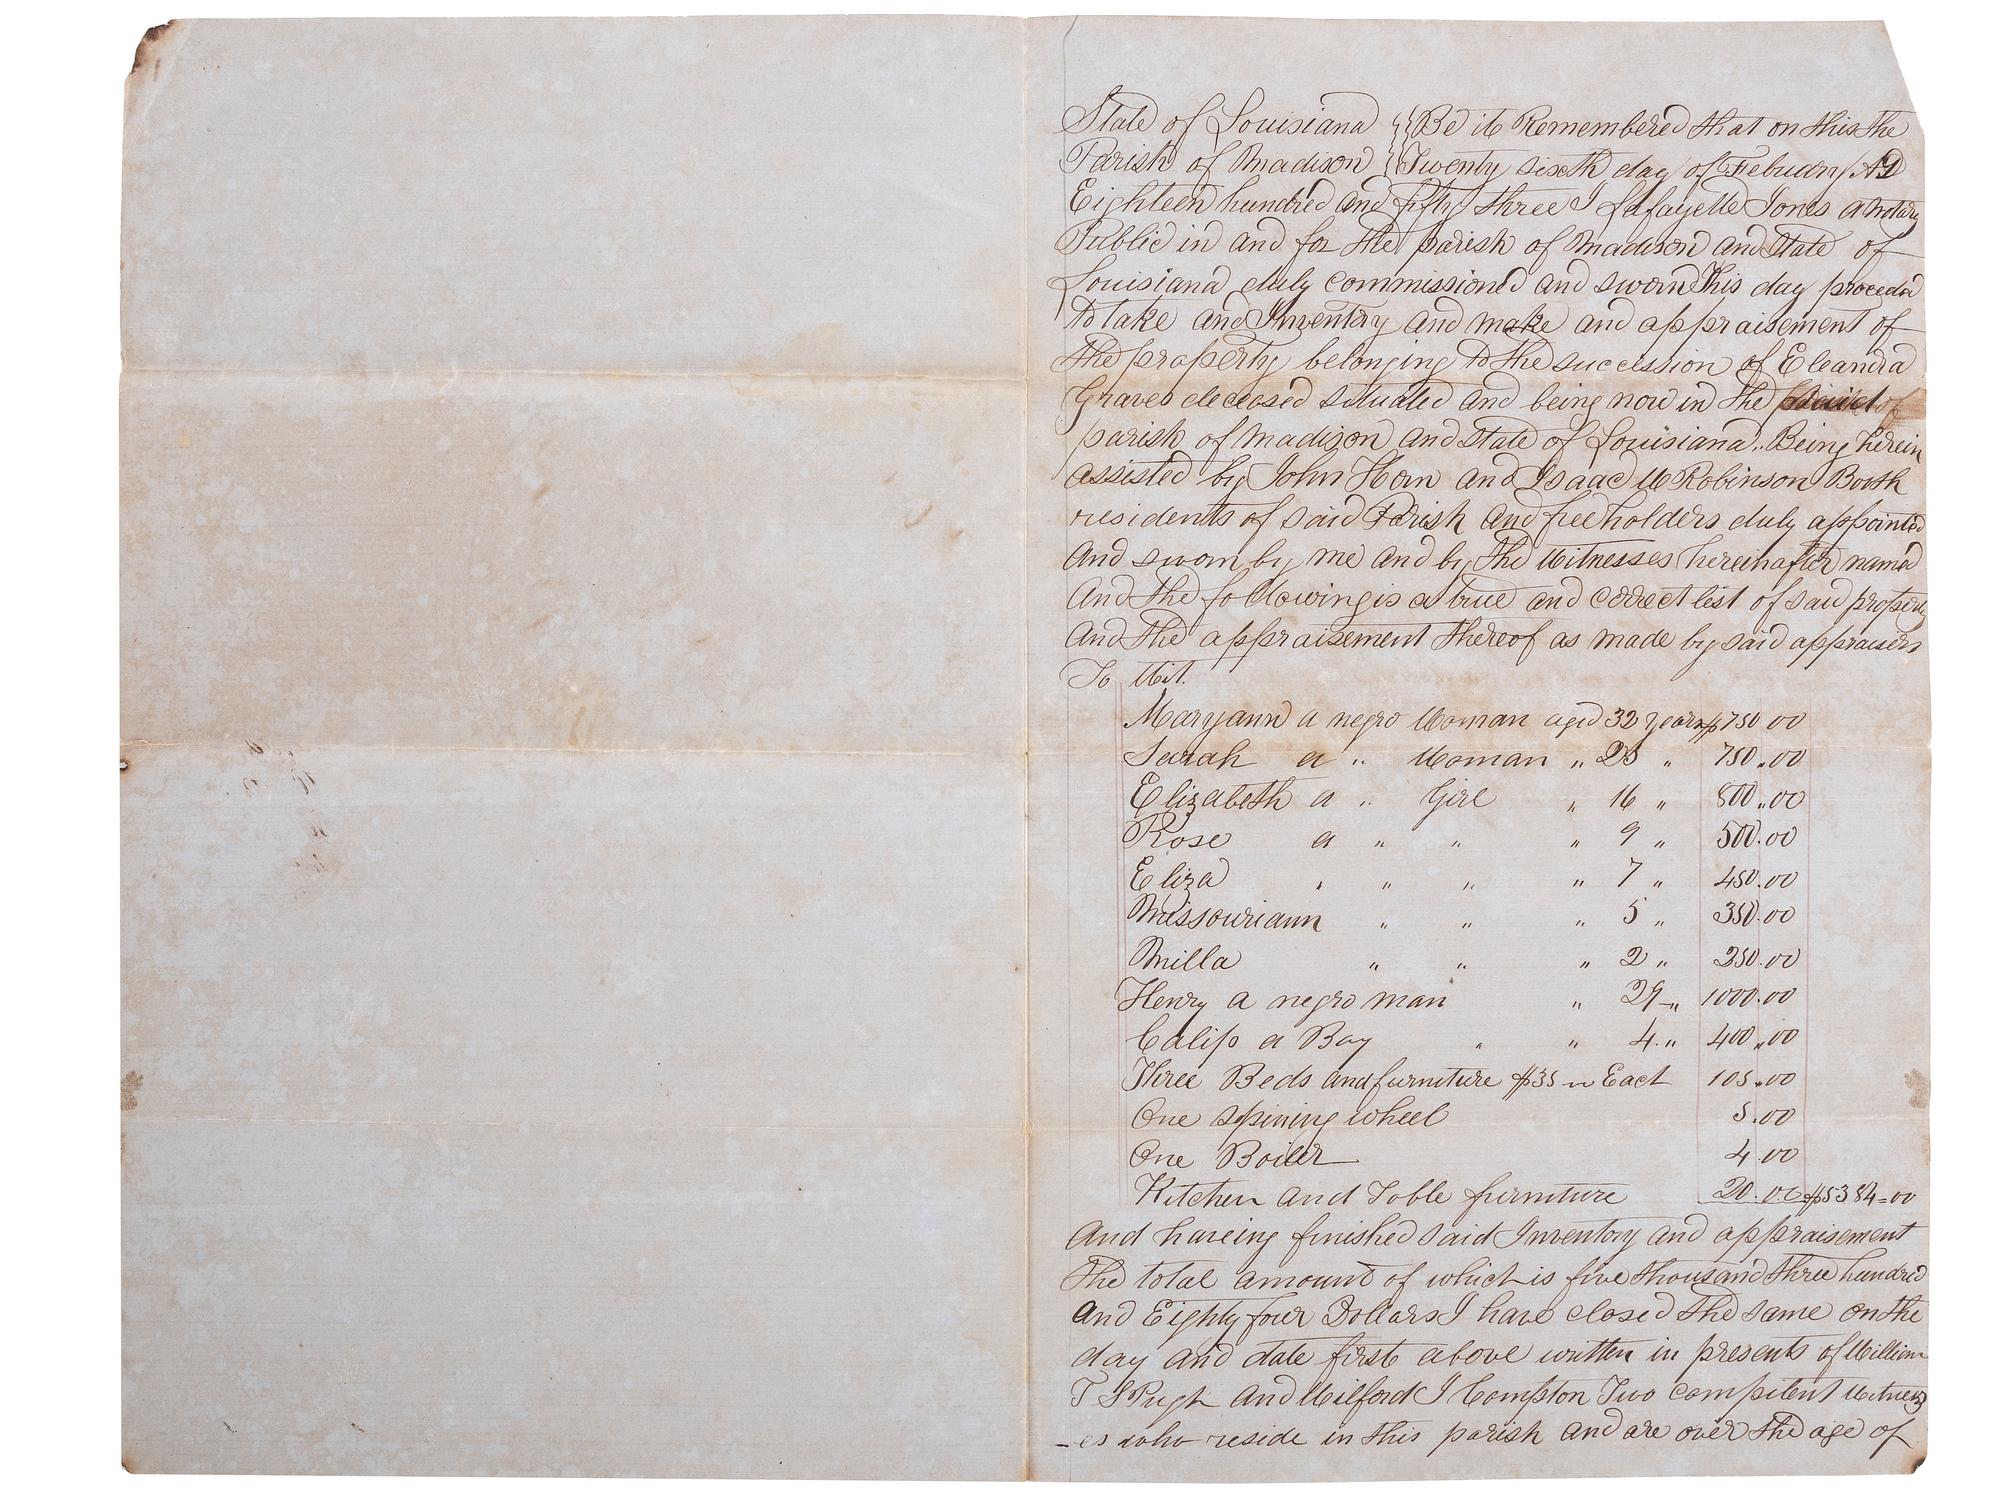 State of Louisiana } Be it Remembered that on this the
Parish of Madison } Twenty sixth day of Febuary AD
Eighteen hundred and fifty three I Lafayette Jones a Notary
Public in and for the parish of Madison and State of
Louisiana duly commissioned and sworn This day proceded
to take and Inventory and make and appraisement of
the property belonging to the succession of Eleandra
Graves deceased situated and being now in the
parish of Madison and State of Louisiana.. Being herein
assisted by John Horn and Isaac W Robinson Booth
residents of said Parish and freeholders duly appointed
And sworn by me and by the Witnesses hereinafter named
And the following is a true and correct list of said property
And the appraisement thereof as made by said appraisers
To Wit.
Maryann a negro Woman aged 32 years $750 00
Sarah a " Woman " 25 " 750.00
Elizabeth a " Girl " 16 " 800.00
Rose a " " " 9 " 500.00
Eliza " " " " 7 " 450.00
Missouriann " " " 5 " 350.00
Milla " " " 2 " 250.00
Henry a negro man " 29 " 1000.00
Calip a Boy " " 4 " 400.00
Three Beds and furniture $35 Each 105.00
One spining wheel 5.00
One Boiler 4.00
Kitchen and Table furniture 20.00 $5384=00
And haveing finished said Inventory and appraisement
The total amount of which is five thousand three hundred
and Eighty four Dollars I have closed the same on the
day and date first above written in presents of William
T S Pugh and Wilford J Compton Two compitent Witness
-es who reside in this parish and are over the age of